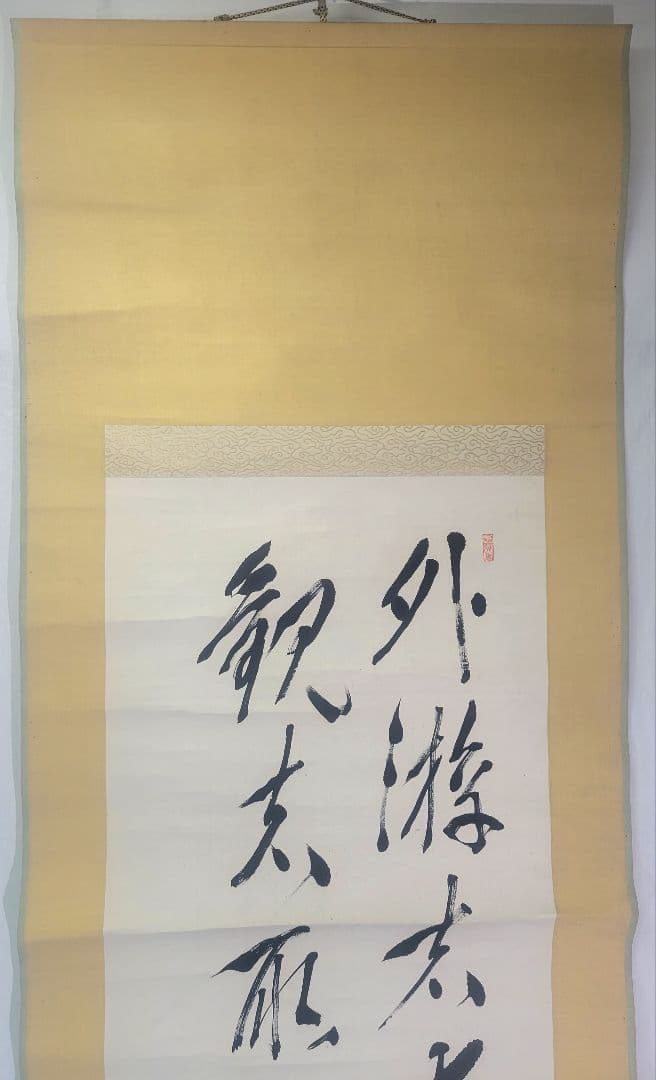 外游者
觀者取